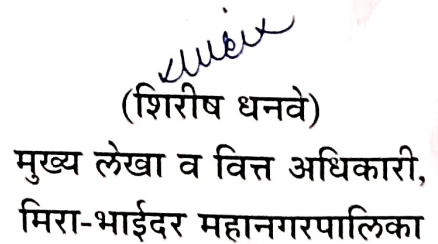 (शिरीष धनवे)
मुख्य लेखा व वित्त अधिकारी,
मिरा-भाईंदर महानगरपालिका